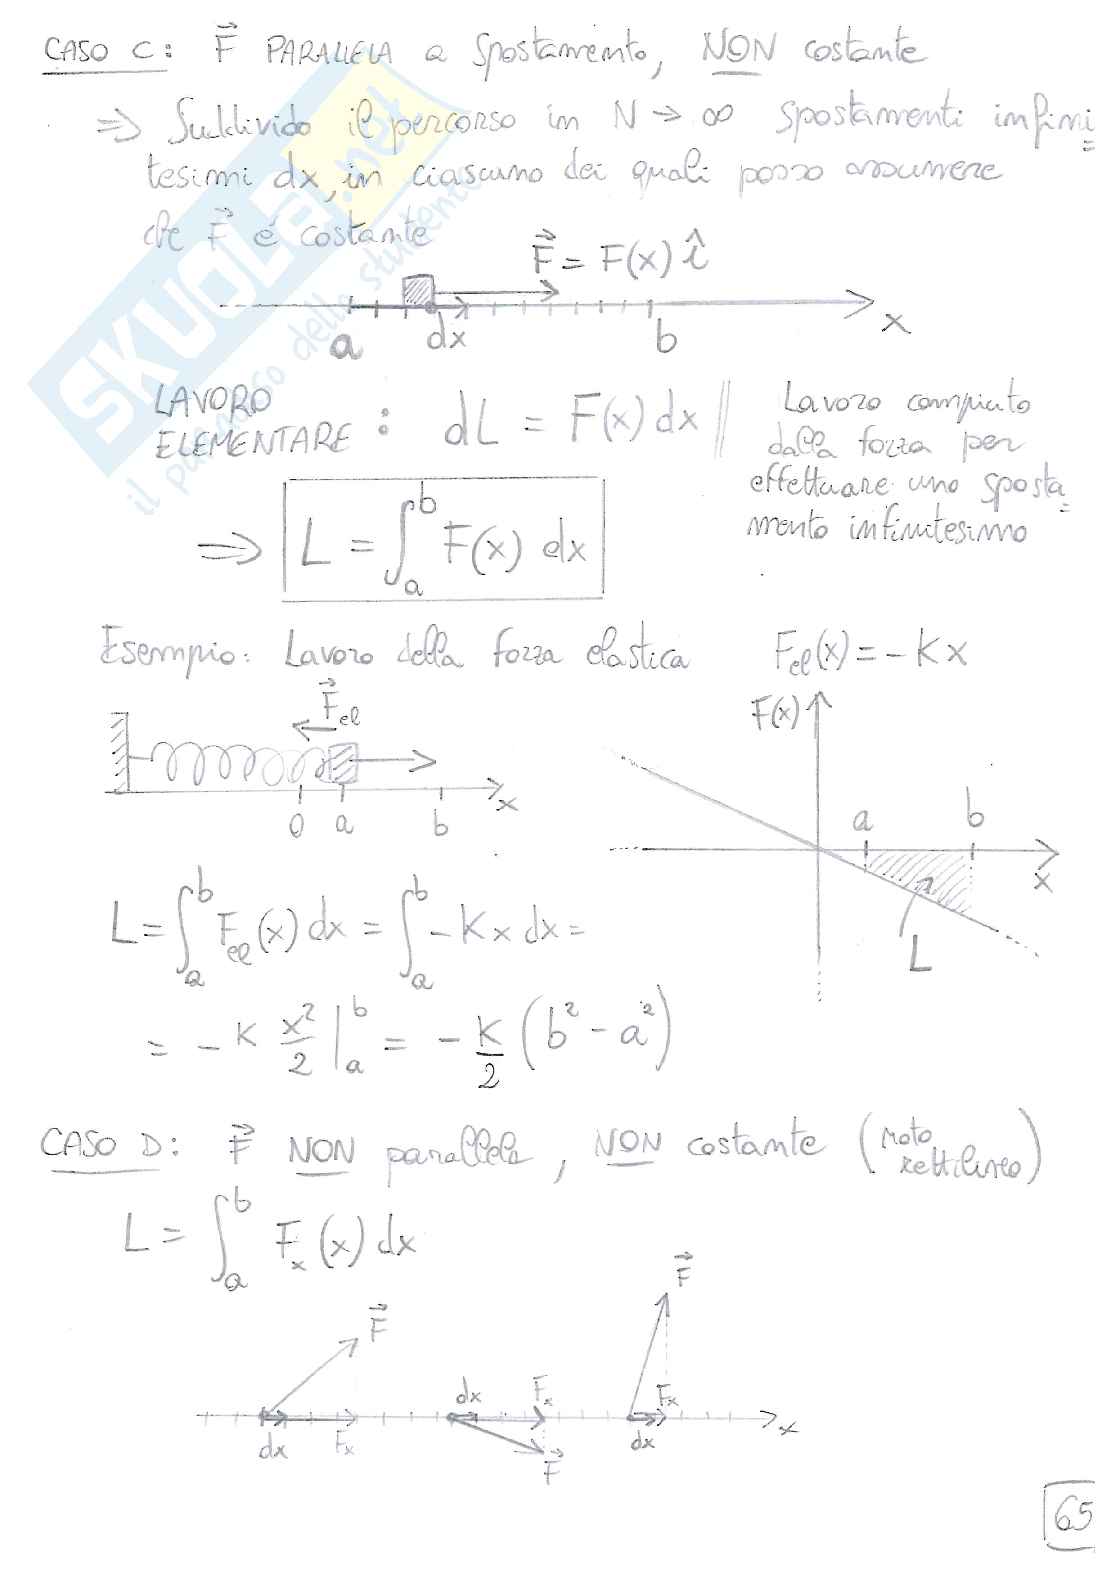 CASO C: F⃗ PARALLELA a spostamento, NON costante
⇒ Suddivido il percorso in N → ∞ spostamenti infini=
tesimi dx, in ciascuno dei quali posso assumere
che F⃗ é costante
F⃗ = F(x) î
a dx b x
LAVORO
ELEMENTARE : dL = F(x) dx
Lavoro compiuto
dalla forza per
effettuare uno sposta=
mento infinitesimo
⇒ L = ∫_a^b F(x) dx
Esempio: Lavoro della forza elastica F_el(x) = - K x
F⃗_el
0 a b x
F(x)
a b
x
L
L = ∫_a^b F_el(x) dx = ∫_a^b - K x dx =
= - K x²/2 |_a^b = - K/2 (b² - a²)
CASO D: F⃗ NON parallela, NON costante (moto rettilineo)
L = ∫_a^b F_x(x) dx
F⃗ F⃗
dx F_x F_x
dx F_x F⃗ dx x
65
SKUOLa.net
il paradiso dello studente